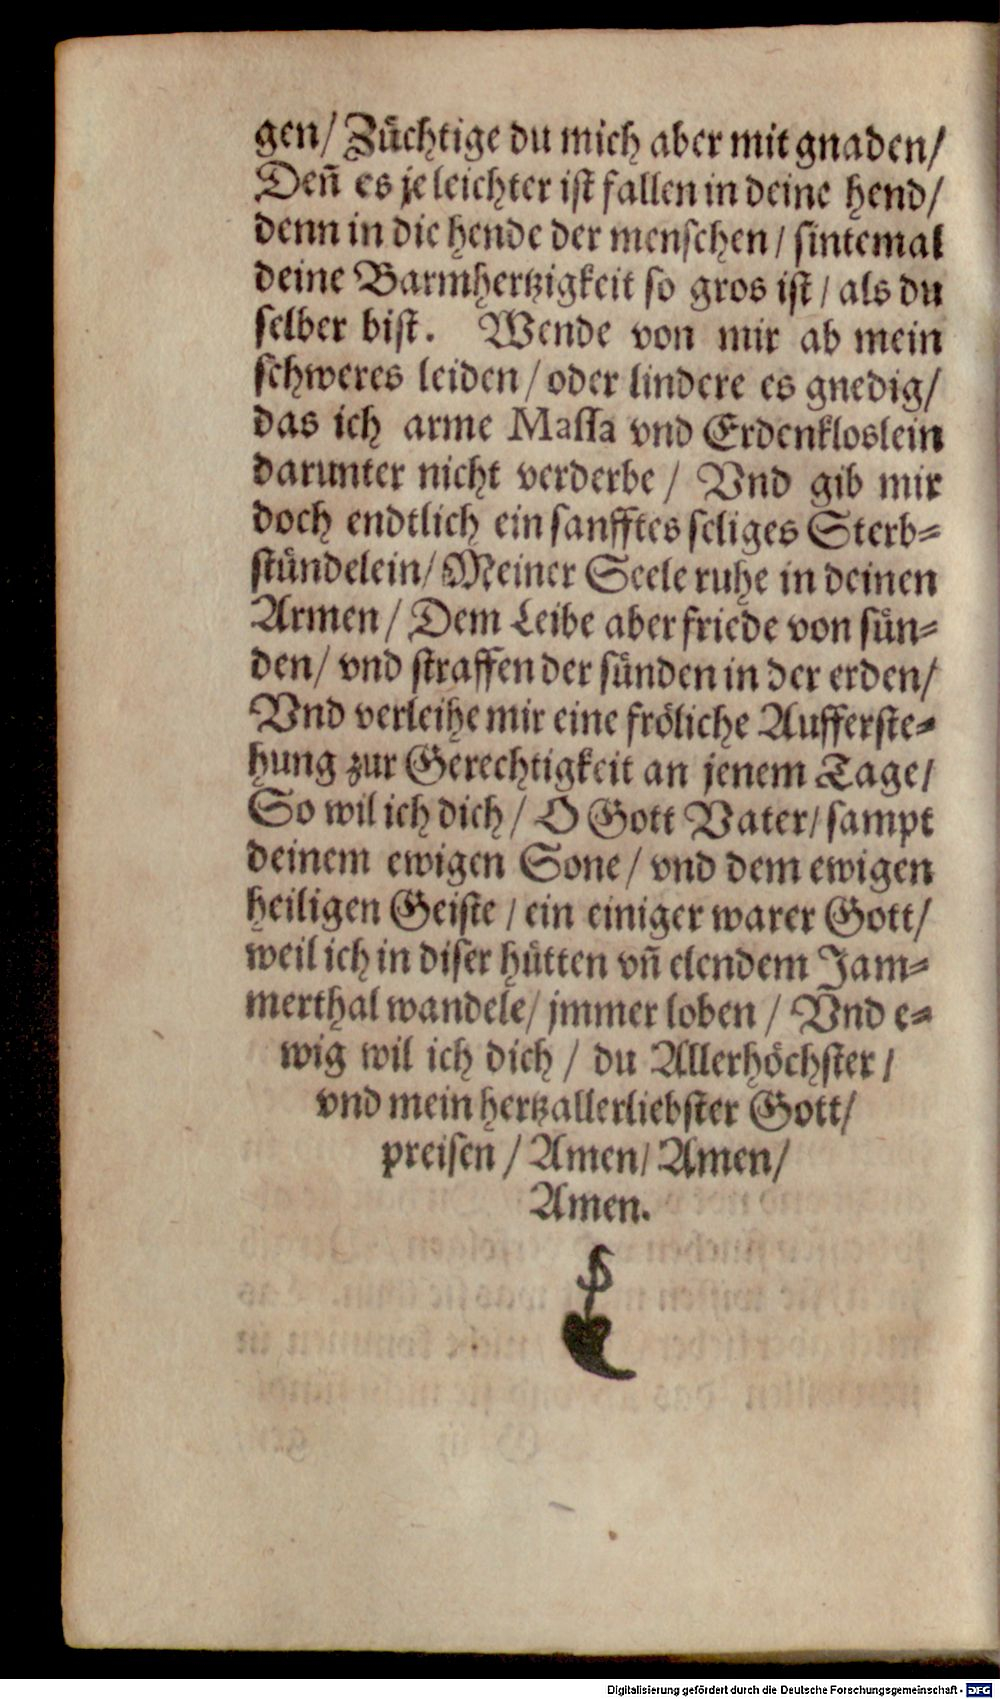 gen/ Züchtige du mich aber mit gnaden/
Deñ es je leichter ist fallen in deine hend/
denn in die hende der menschen/ sintemal
deine Barmhertzigkeit so gros ist/ als du
selber bist. Wende von mir ab mein
schweres leiden/ oder lindere es gnedig/
das ich arme Massa vnd Erdenkloslein
darunter nicht verderbe/ Vnd gib mir
doch endtlich ein sanfftes seliges Sterb⸗
stündelein/ Meiner Seele ruhe in deinen
Armen/ Dem Leibe aber friede von sün⸗
den/ vnd straffen der sünden in der erden/
Vnd verleihe mir eine fröliche Aufferste⸗
hung zur Gerechtigkeit an jenem Tage/
So wil ich dich/ O Gott Vater/ sampt
deinem ewigen Sone/ vnd dem ewigen
heiligen Geiste/ ein einiger warer Gott/
weil ich in diser hütten vñ elendem Jam⸗
merthal wandele/ jmmer loben/ Vnd e⸗
wig wil ich dich/ du Allerhöchster/
vnd mein hertzallerliebster Gott/
preisen/ Amen/ Amen/
Amen.
Digitalisierung gefördert durch die Deutsche Forschungsgemeinschaft - DFG